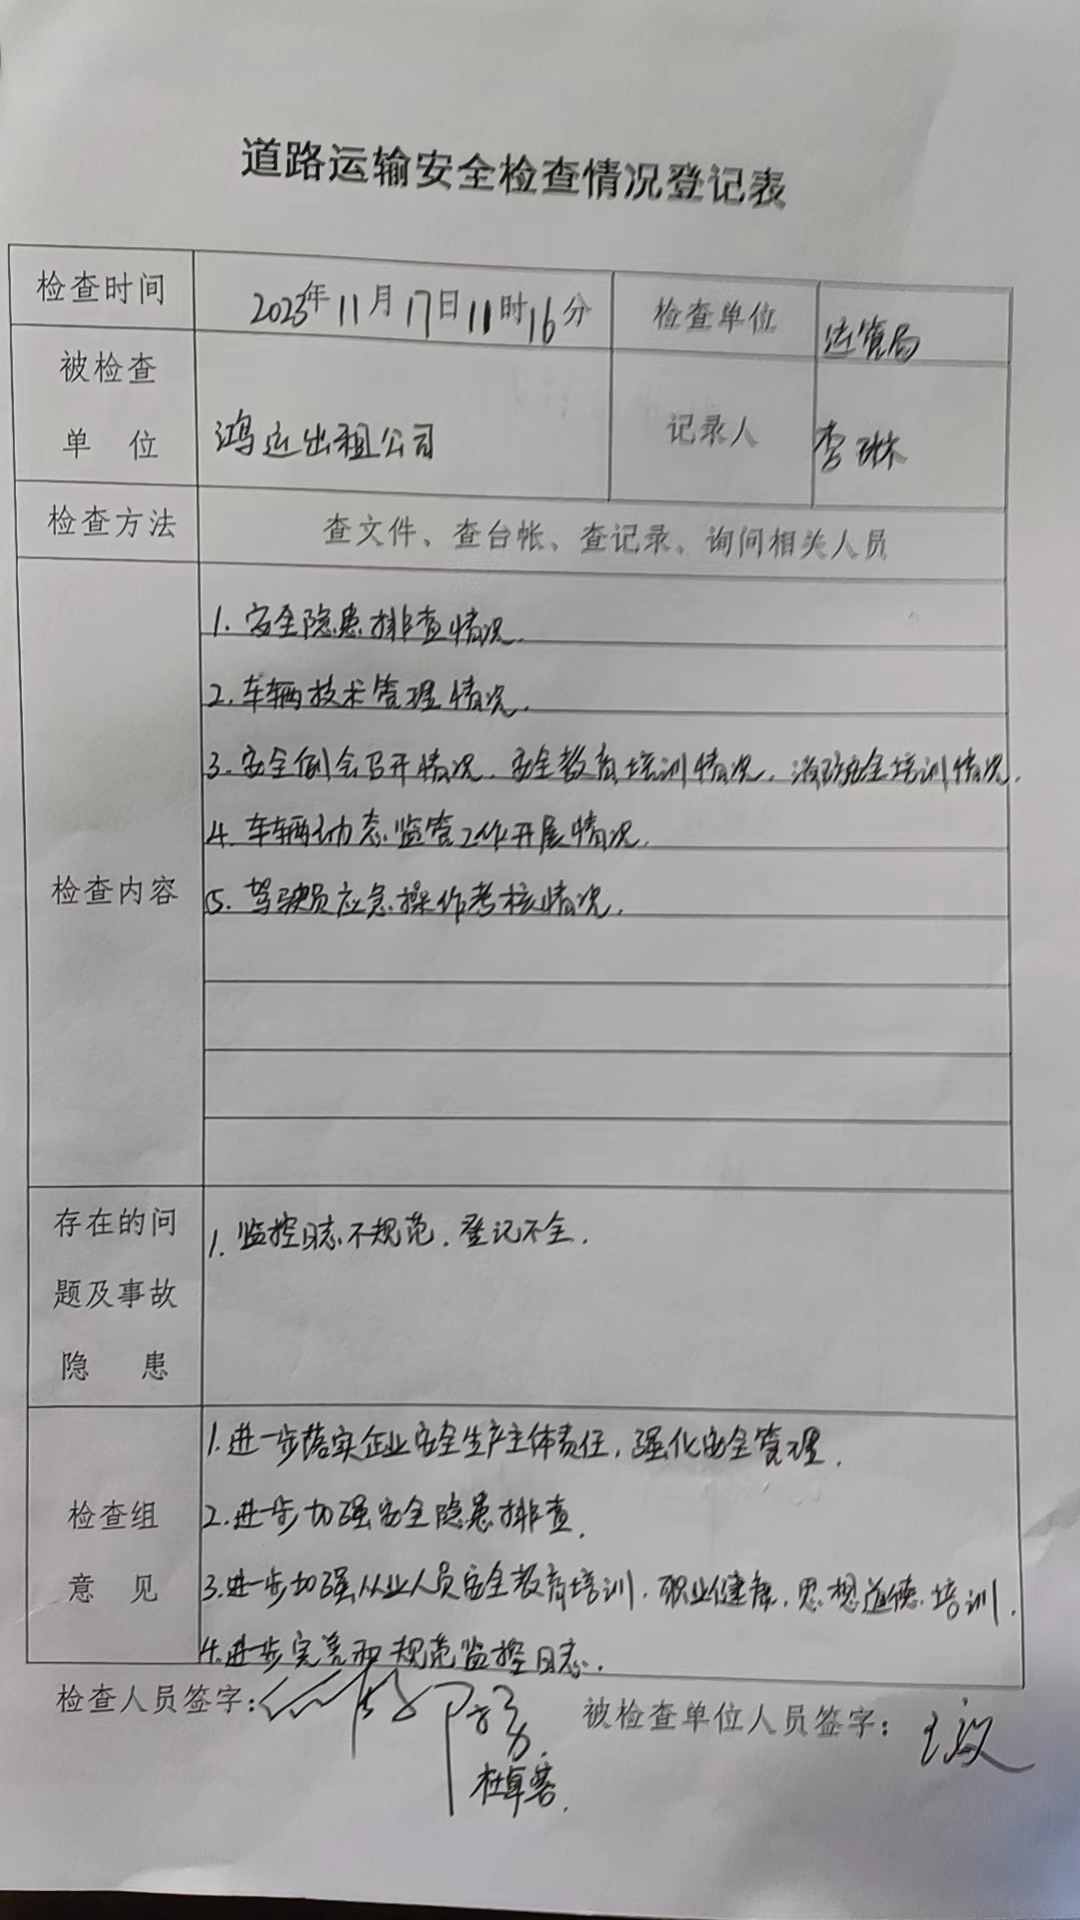 道路运输安全检查情况登记表
检查时间 2023年11月17日11时16分 检查单位 运管局
被检查单位 鸿运出租公司 记录人 李琳
检查方法 查文件、查台帐、查记录、询问相关人员
检查内容
1. 安全隐患排查情况.
2. 车辆技术管理情况.
3. 安全例会召开情况. 安全教育培训情况. 消防安全培训情况.
4. 车辆动态监管工作开展情况.
5. 驾驶员应急操作考核情况.
存在的问题及事故隐患
1. 监控日志不规范. 登记不全.
检查组意见
1. 进一步落实企业安全生产主体责任, 强化安全管理.
2. 进一步加强安全隐患排查.
3. 进一步加强从业人员安全教育培训. 职业健康. 思想道德培训.
4. 进一步完善和规范监控日志.
检查人员签字: 被检查单位人员签字: